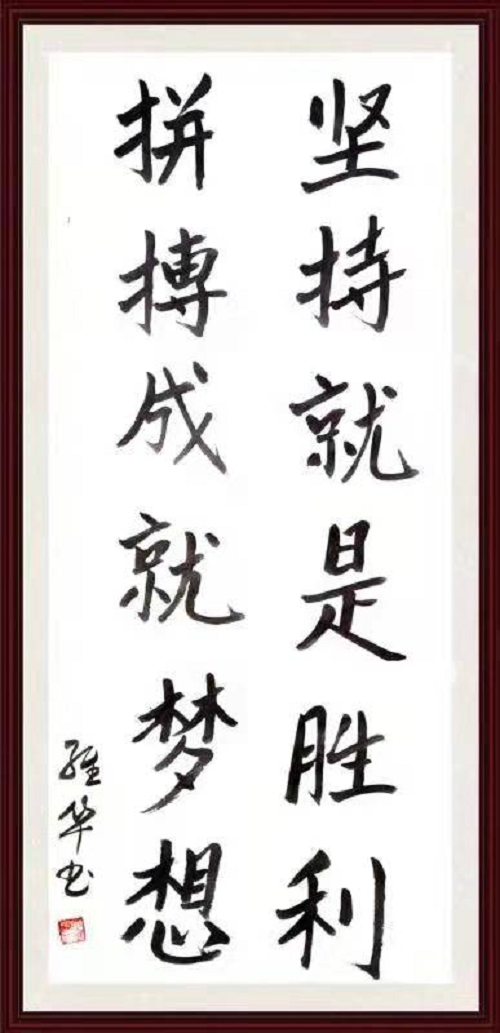 坚持就是胜利
拼搏成就梦想
维华书